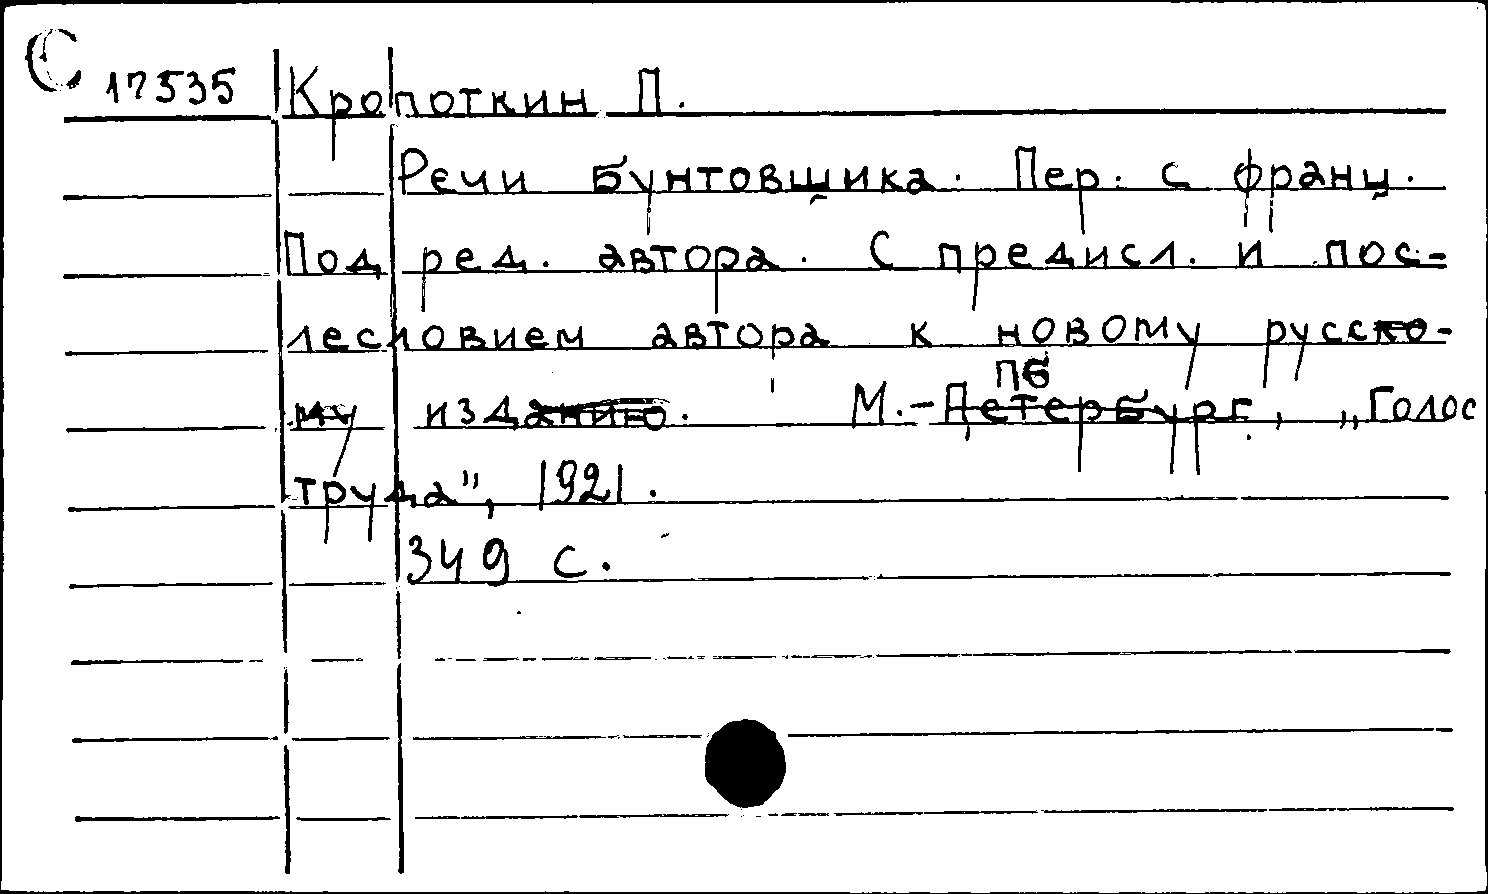 С 17535 Кропоткин П.
Речи бунтовщика. Пер. с франц.
Под ред. автора. С предисл. и пос-
лесловием автора к новому русско-
му изданию. М.-Петербург, „Голос
Пб
труда", 1921.
349 с.